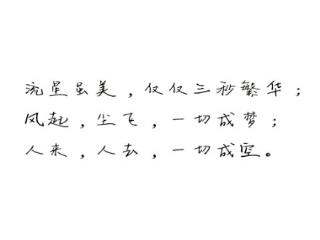 流星虽美，仅仅三秒繁华；
风起，尘飞，一切成梦；
人来，人去，一切成空。